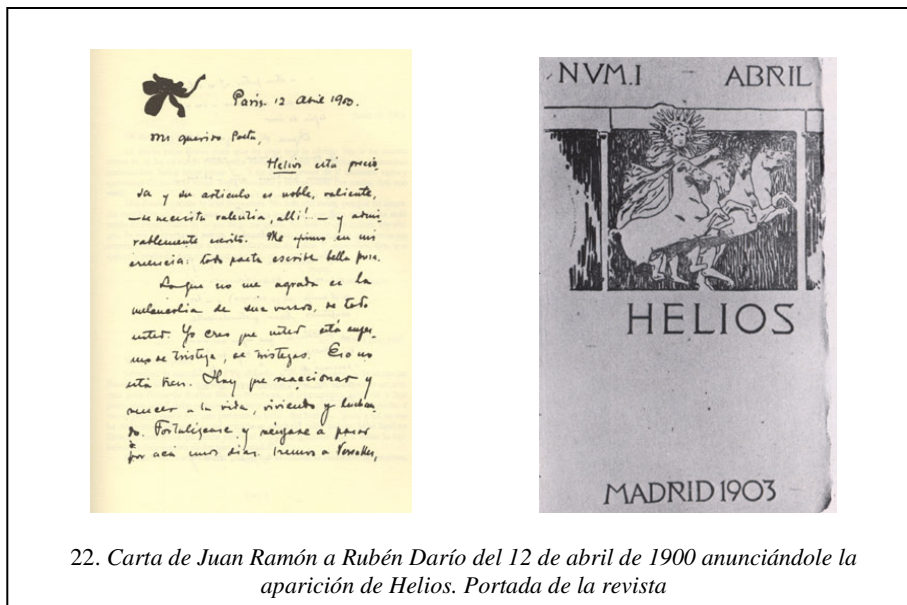 París. 12 Abril 1903.
Mi querido Poeta,
Helios está precio-
sa y su artículo es noble, valiente,
—se necesita valentía, allí!— y admi-
rablemente escrito. Me afirmo en mi
creencia: todo poeta escribe bella prosa.
Lo que no me agrada es la
melancolía de sus versos, de todo
usted. Yo creo que usted está enfer-
mo de tristeza, de tristezas. Eso no
está bien. Hay que reaccionar y
vencer a la vida, viviendo y luchan-
do. Fortalézcase y véngase a pasar
por acá unos días. Iremos a Versalles,
NVM.I - ABRIL
HELIOS
MADRID 1903
22. Carta de Juan Ramón a Rubén Darío del 12 de abril de 1900 anunciándole la
aparición de Helios. Portada de la revista